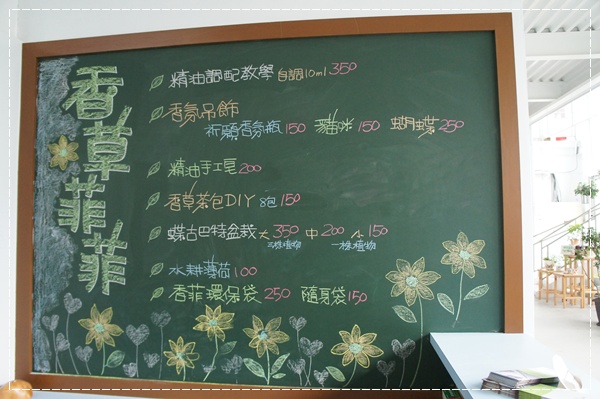 香草菲菲
精油調配教學 自調10ml 350
香氛吊飾
祈願香氛瓶 150 貓咪 150 蝴蝶 250
精油手工皂 200
香草茶包DIY 8包 150
蝶古巴特盆栽 大 350 中 200 小 150
三株植物 一株植物
水耕薄荷 100
香菲環保袋 250 隨身袋 150